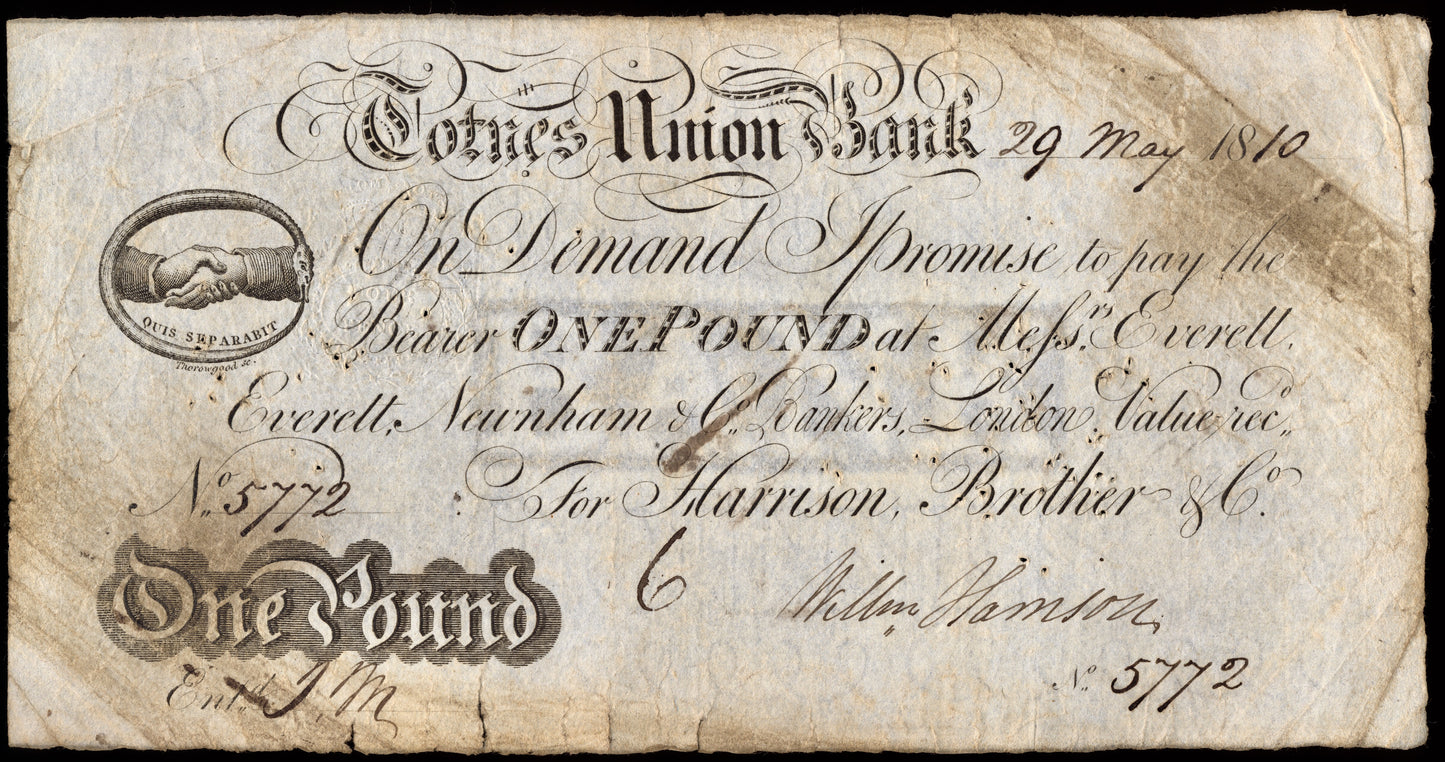 Totnes Union Bank 29 May 1810
On Demand I promise to pay the
Bearer ONE POUND at Messrs. Everett,
Everett, Newnham & Co. Bankers, London, Value recd.
No. 5772 For Harrison, Brother & Co.
QUIS SEPARABIT
Thorowgood sc.
One Pound
6
Willm Harrison
Entd. J.M
No. 5772